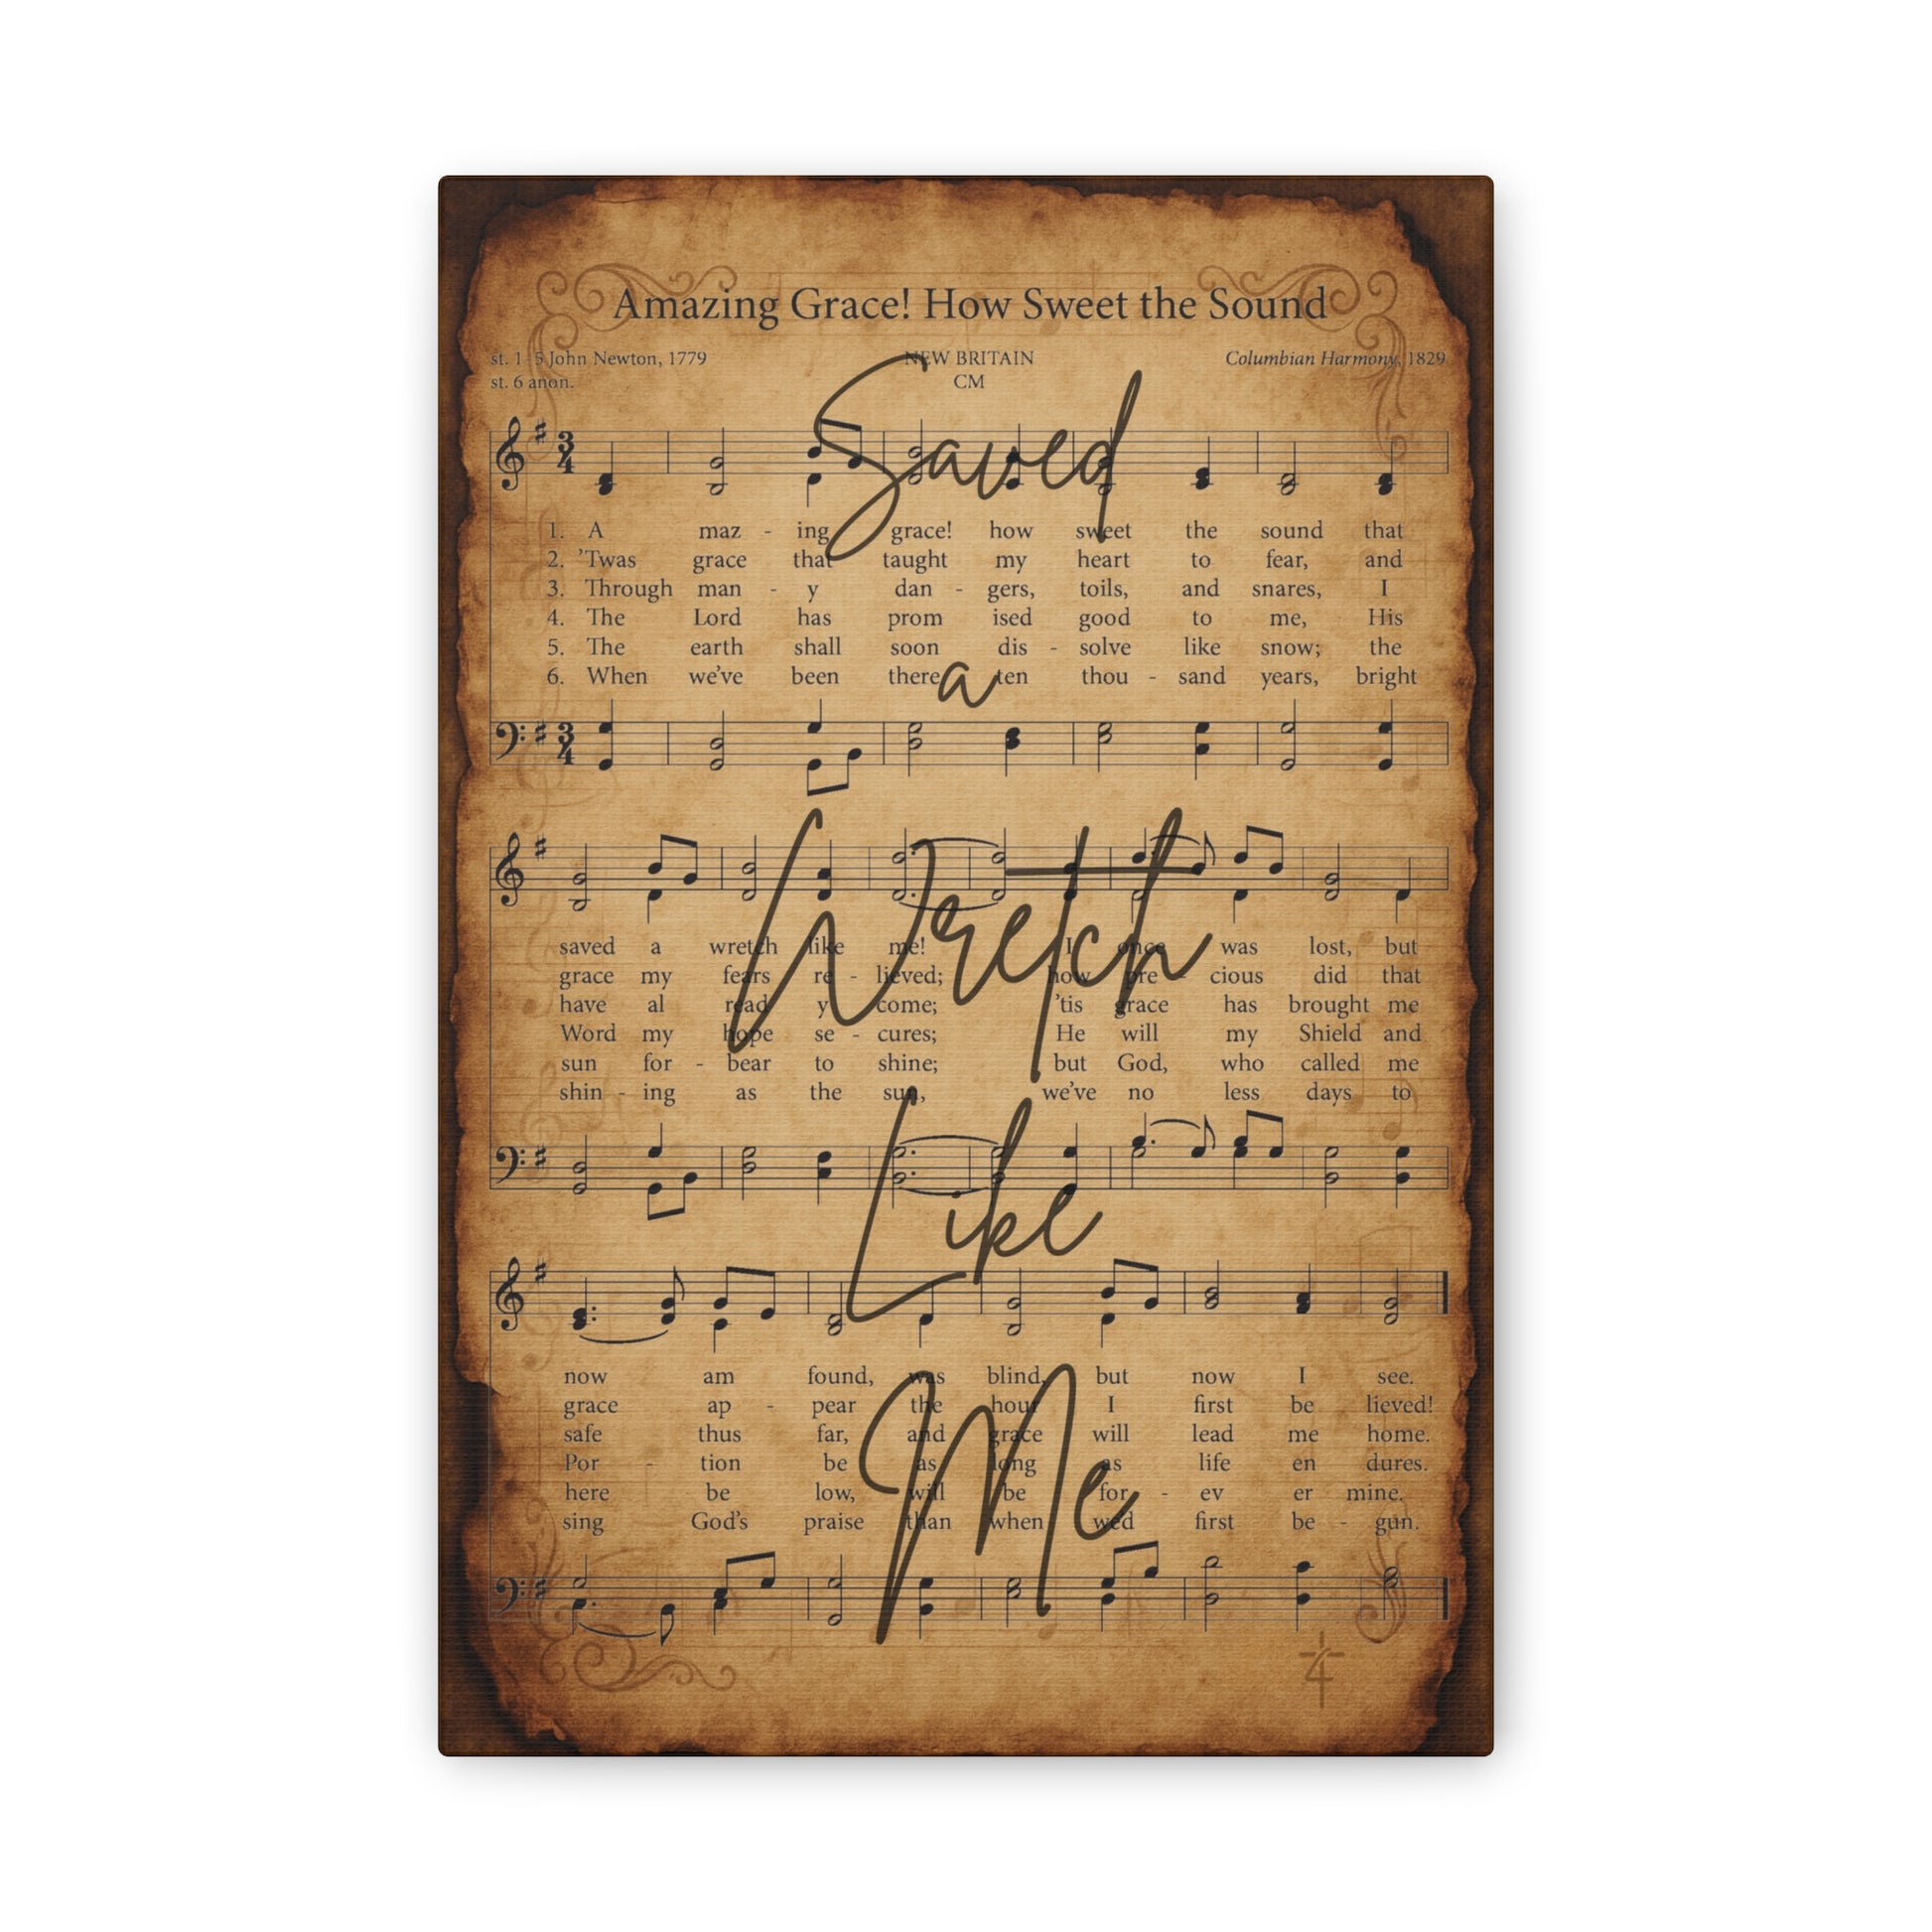 Amazing Grace! How Sweet the Sound
st. 1-5 John Newton, 1779 NEW BRITAIN Columbian Harmony, 1829
st. 6 anon. CM
Saved
3 4
1. A maz - ing grace! how sweet the sound that
2. ’Twas grace that taught my heart to fear, and
3. Through man - y dan - gers, toils, and snares, I
4. The Lord has prom ised good to me, His
5. The earth shall soon dis - solve like snow; the
6. When we’ve been there ten thou - sand years, bright
a
3 4
Wretch
saved a wretch like me! I once was lost, but
grace my fears re - lieved; how pre - cious did that
have al read y come; ’tis grace has brought me
Word my hope se - cures; He will my Shield and
sun for - bear to shine; but God, who called me
shin - ing as the sun, we’ve no less days to
Like
now am found, was blind, but now I see.
grace ap - pear the hour I first be lieved!
safe thus far, and grace will lead me home.
Por - tion be as long as life en dures.
here be low, will be for - ev er mine.
sing God’s praise than when we’d first be - gun.
Me